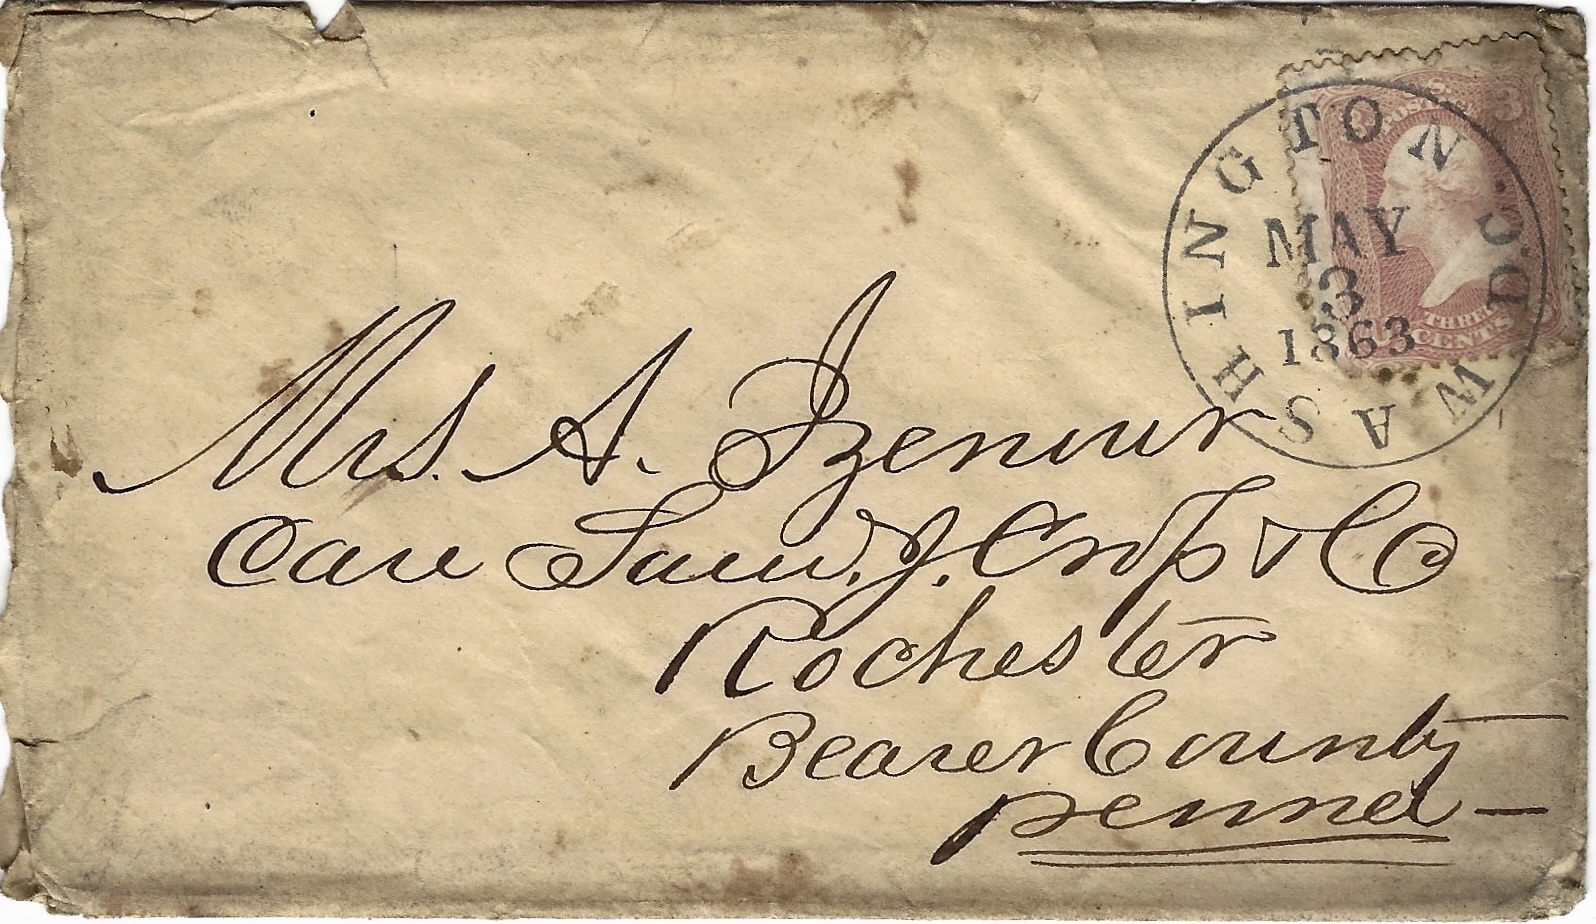 U.S. POSTAGE
3 3
THREE CENTS
WASHINGTON D.C.
MAY
3
1863
Mrs. A. Izenour
Care Saml. J. Cross & Co
Rochester
Beaver County
penna